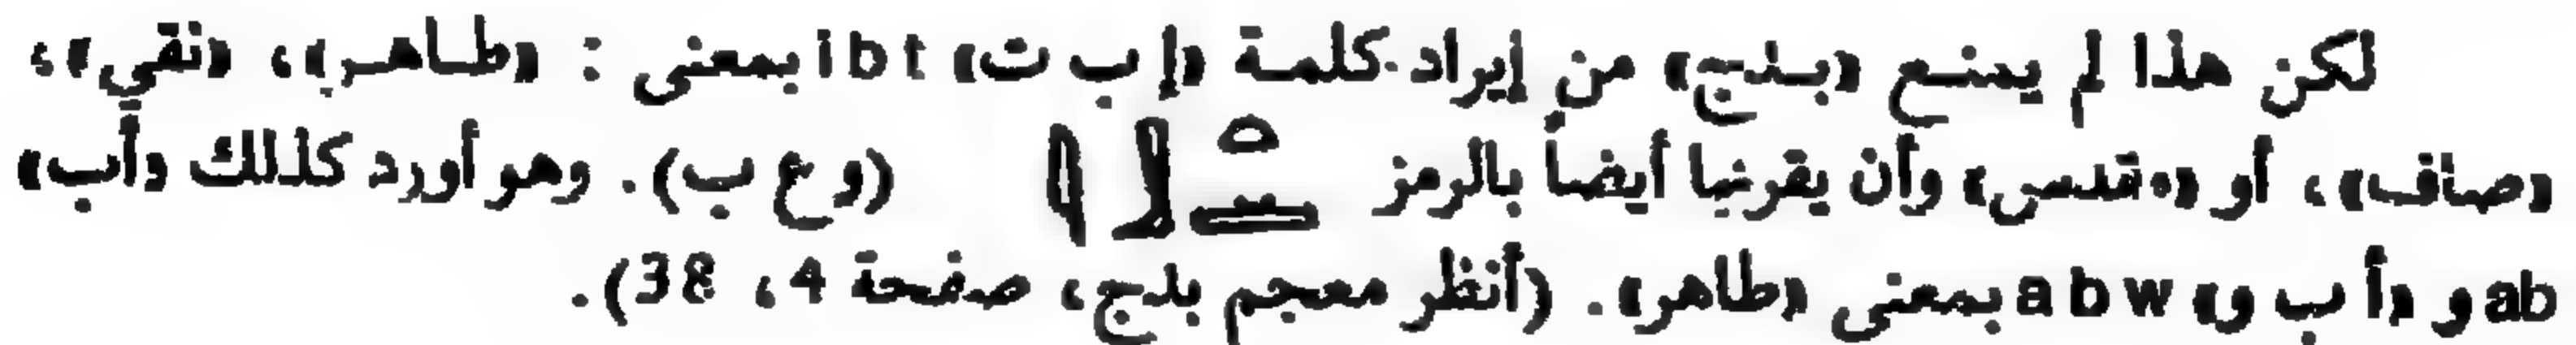 لكن هذا لم يمنـع «بـدج» من إيراد كلمـة «إ ب ت» ibt بمعنى : «طـاهـر»، «نقي»،
«صاف»، أو «مقدس» وأن يقرنها أيضاً بالرمز (و ع ب). وهو أورد كذلك «أب»
ab و «أ ب و» abw بمعنى «طاهر». (أنظر معجم بدج، صفحة 4، 38).